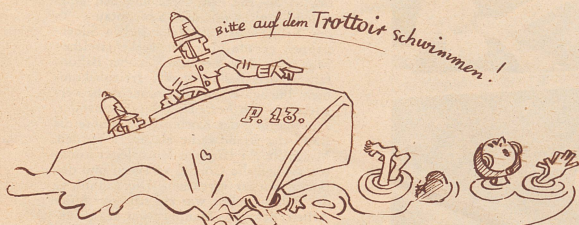 Bitte auf dem Trottoir schwimmen!
P. 13.